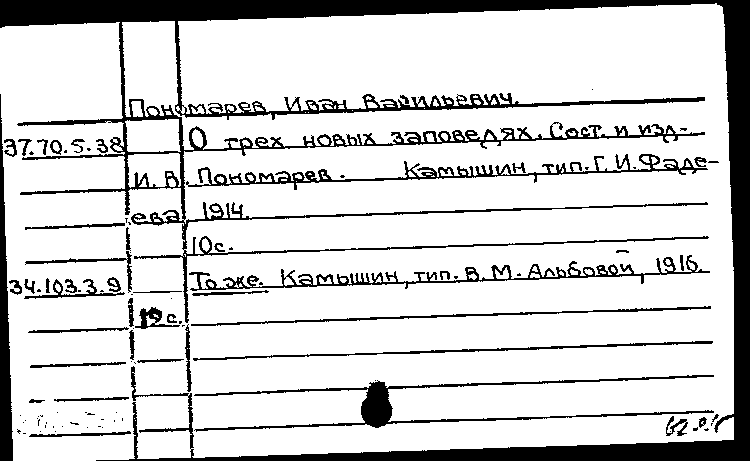 Пономарев, Иван Васильевич.
37.70.5.38 О трех новых заповедях. Сост. и изд-
И. В. Пономарев. Камышин, тип. Г. И. Фаде-
ева, 1914.
10с.
34.103.3.9 То же. Камышин, тип. В. М. Альбовой, 1916.
с.